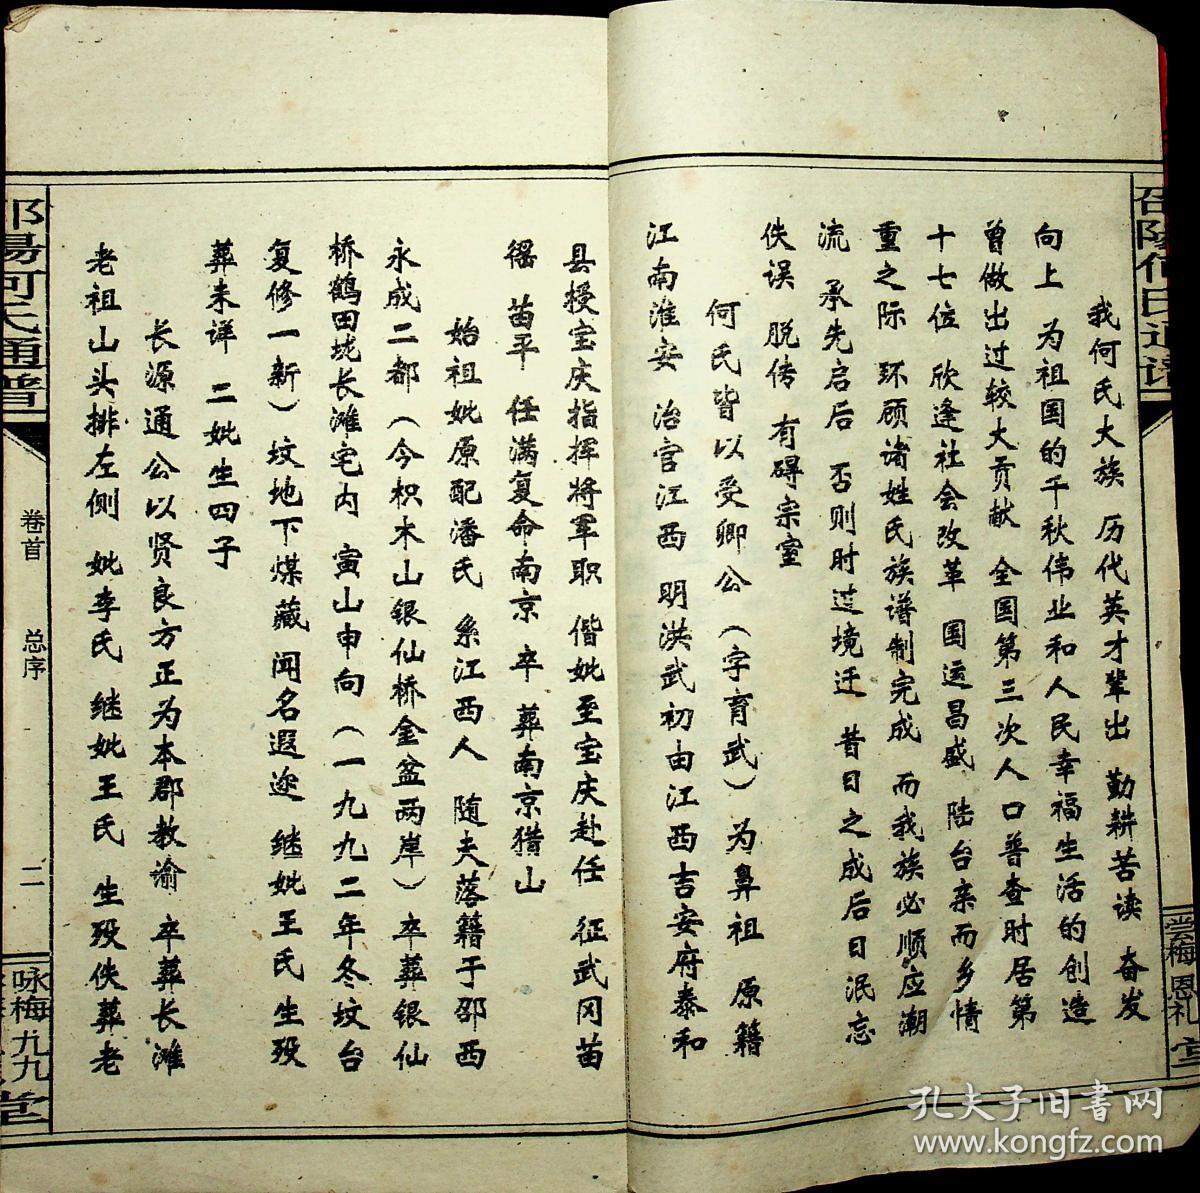 我何氏大族 历代英才辈出 勤耕苦读 奋发
向上 为祖国的千秋伟业和人民幸福生活的创造
曾做出过较大贡献 全国第三次人口普查时居第
十七位 欣逢社会改革 国运昌盛 陆台亲而乡情
重之际 环顾诸姓氏族谱制完成 而我族必顺应潮
流 承先启后 否则时过境迁 昔日之成后日泯忘
佚误 脱传 有碍宗室
何氏皆以受卿公（字育武）为鼻祖 原籍
江南淮安 治官江西 明洪武初由江西吉安府泰和
县授宝庆指挥将军职 偕妣至宝庆赴任 征武冈苗
徭 苗平 任满复命南京 卒 葬南京猎山
始祖妣原配潘氏 系江西人 随夫落籍于邵西
永成二都（今枳木山银仙桥金盆两岸）卒葬银仙
桥鹤田垅长滩宅内 寅山申向（一九九二年冬坟台
复修一新）坟地下煤藏 闻名遐迩 继妣王氏生殁
葬未详 二妣生四子
长源通公以贤良方正为本郡教谕 卒葬长滩
老祖山头排左侧 妣李氏 继妣王氏 生殁佚葬老
邵陽何氏通譜
卷首 总序 二
咏梅 九九
堂
邵陽何氏通譜
梅 恩礼
堂
孔夫子旧书网
www.kongfz.com